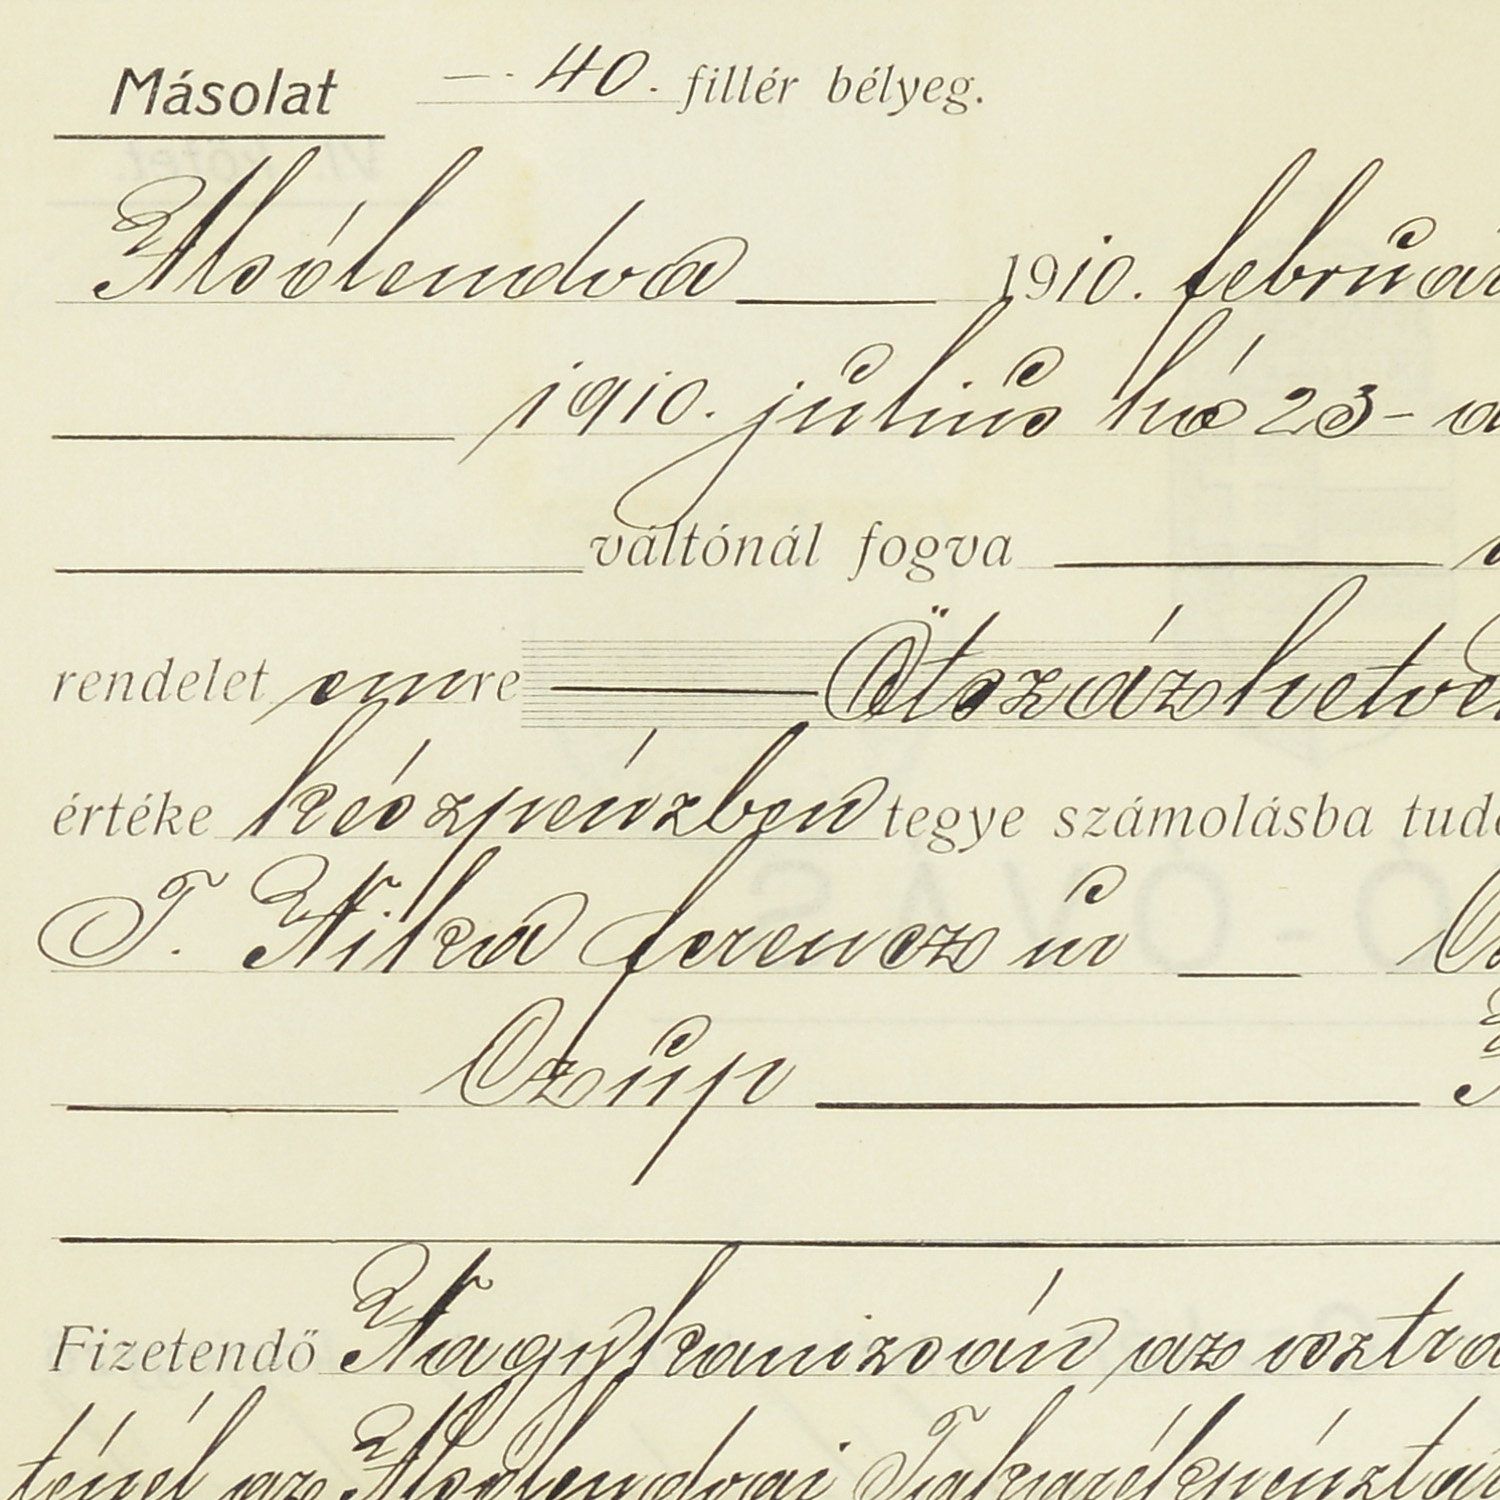 Másolat —. 40. fillér bélyeg.
Alsólendva 1910. február
1910. július hó 23-
váltónál fogva
rendelet emre Ötszázhetve
értéke készpénzben tegye számolásba tud
T. Nika Ferencz úr
Czúp
Fizetendő Nagykanizsán az osztrá
ténél az Alsólendvai Takarékpénztá